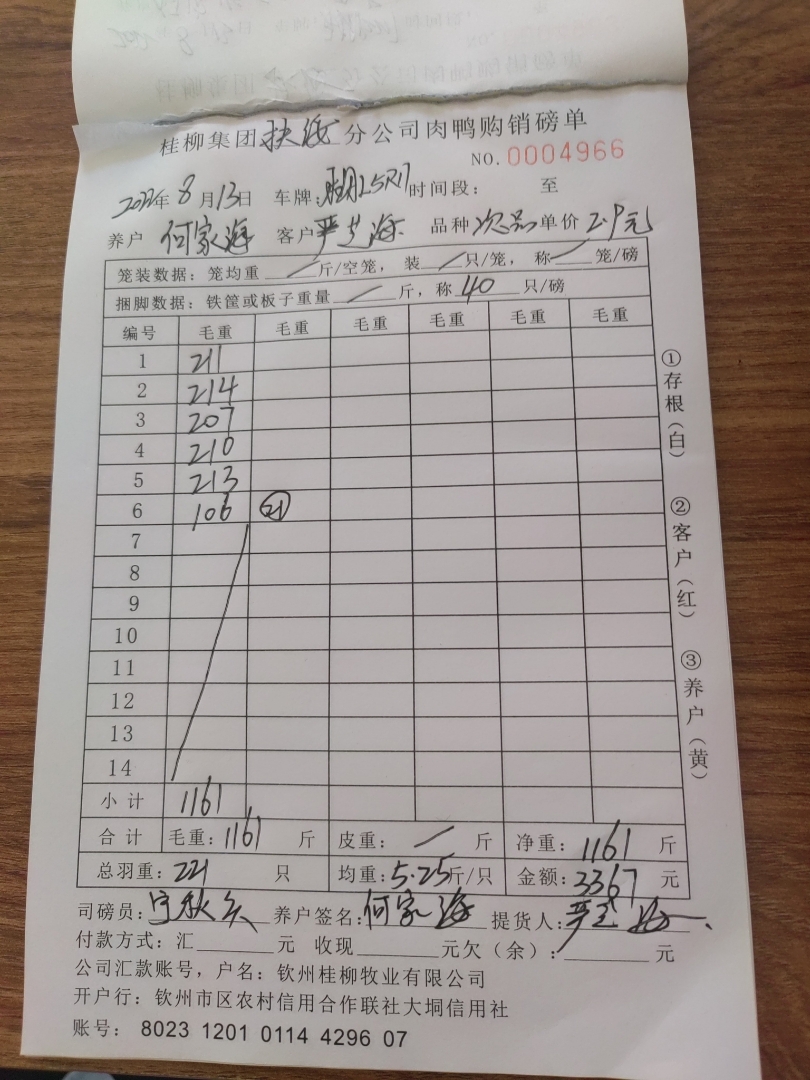 桂柳集团扶绥分公司肉鸭购销磅单
NO.0004966
2022年8月13日 车牌: 时间段: 至
养户 何家海 客户 严芝海 品种 次品 单价 2.9元
笼装数据: 笼均重 / 斤/空笼, 装 / 只/笼, 称 / 笼/磅
捆脚数据: 铁筐或板子重量 / 斤, 称 40 只/磅
编号 毛重 毛重 毛重 毛重 毛重 毛重
1 211
2 214
3 207
4 210
5 213
6 106 21
7
8
9
10
11
12
13
14
小计 1161
合计 毛重: 1161 斤 皮重: / 斤 净重: 1161 斤
总羽重: 221 只 均重: 5.25斤/只 金额: 3367 元
司磅员: 养户签名: 何家海 提货人:
付款方式: 汇 元 收现 元欠(余): 元
公司汇款账号, 户名: 钦州桂柳牧业有限公司
开户行: 钦州市区农村信用合作联社大垌信用社
账号: 8023 1201 0114 4296 07
①存根(白)
②客户(红)
③养户(黄)